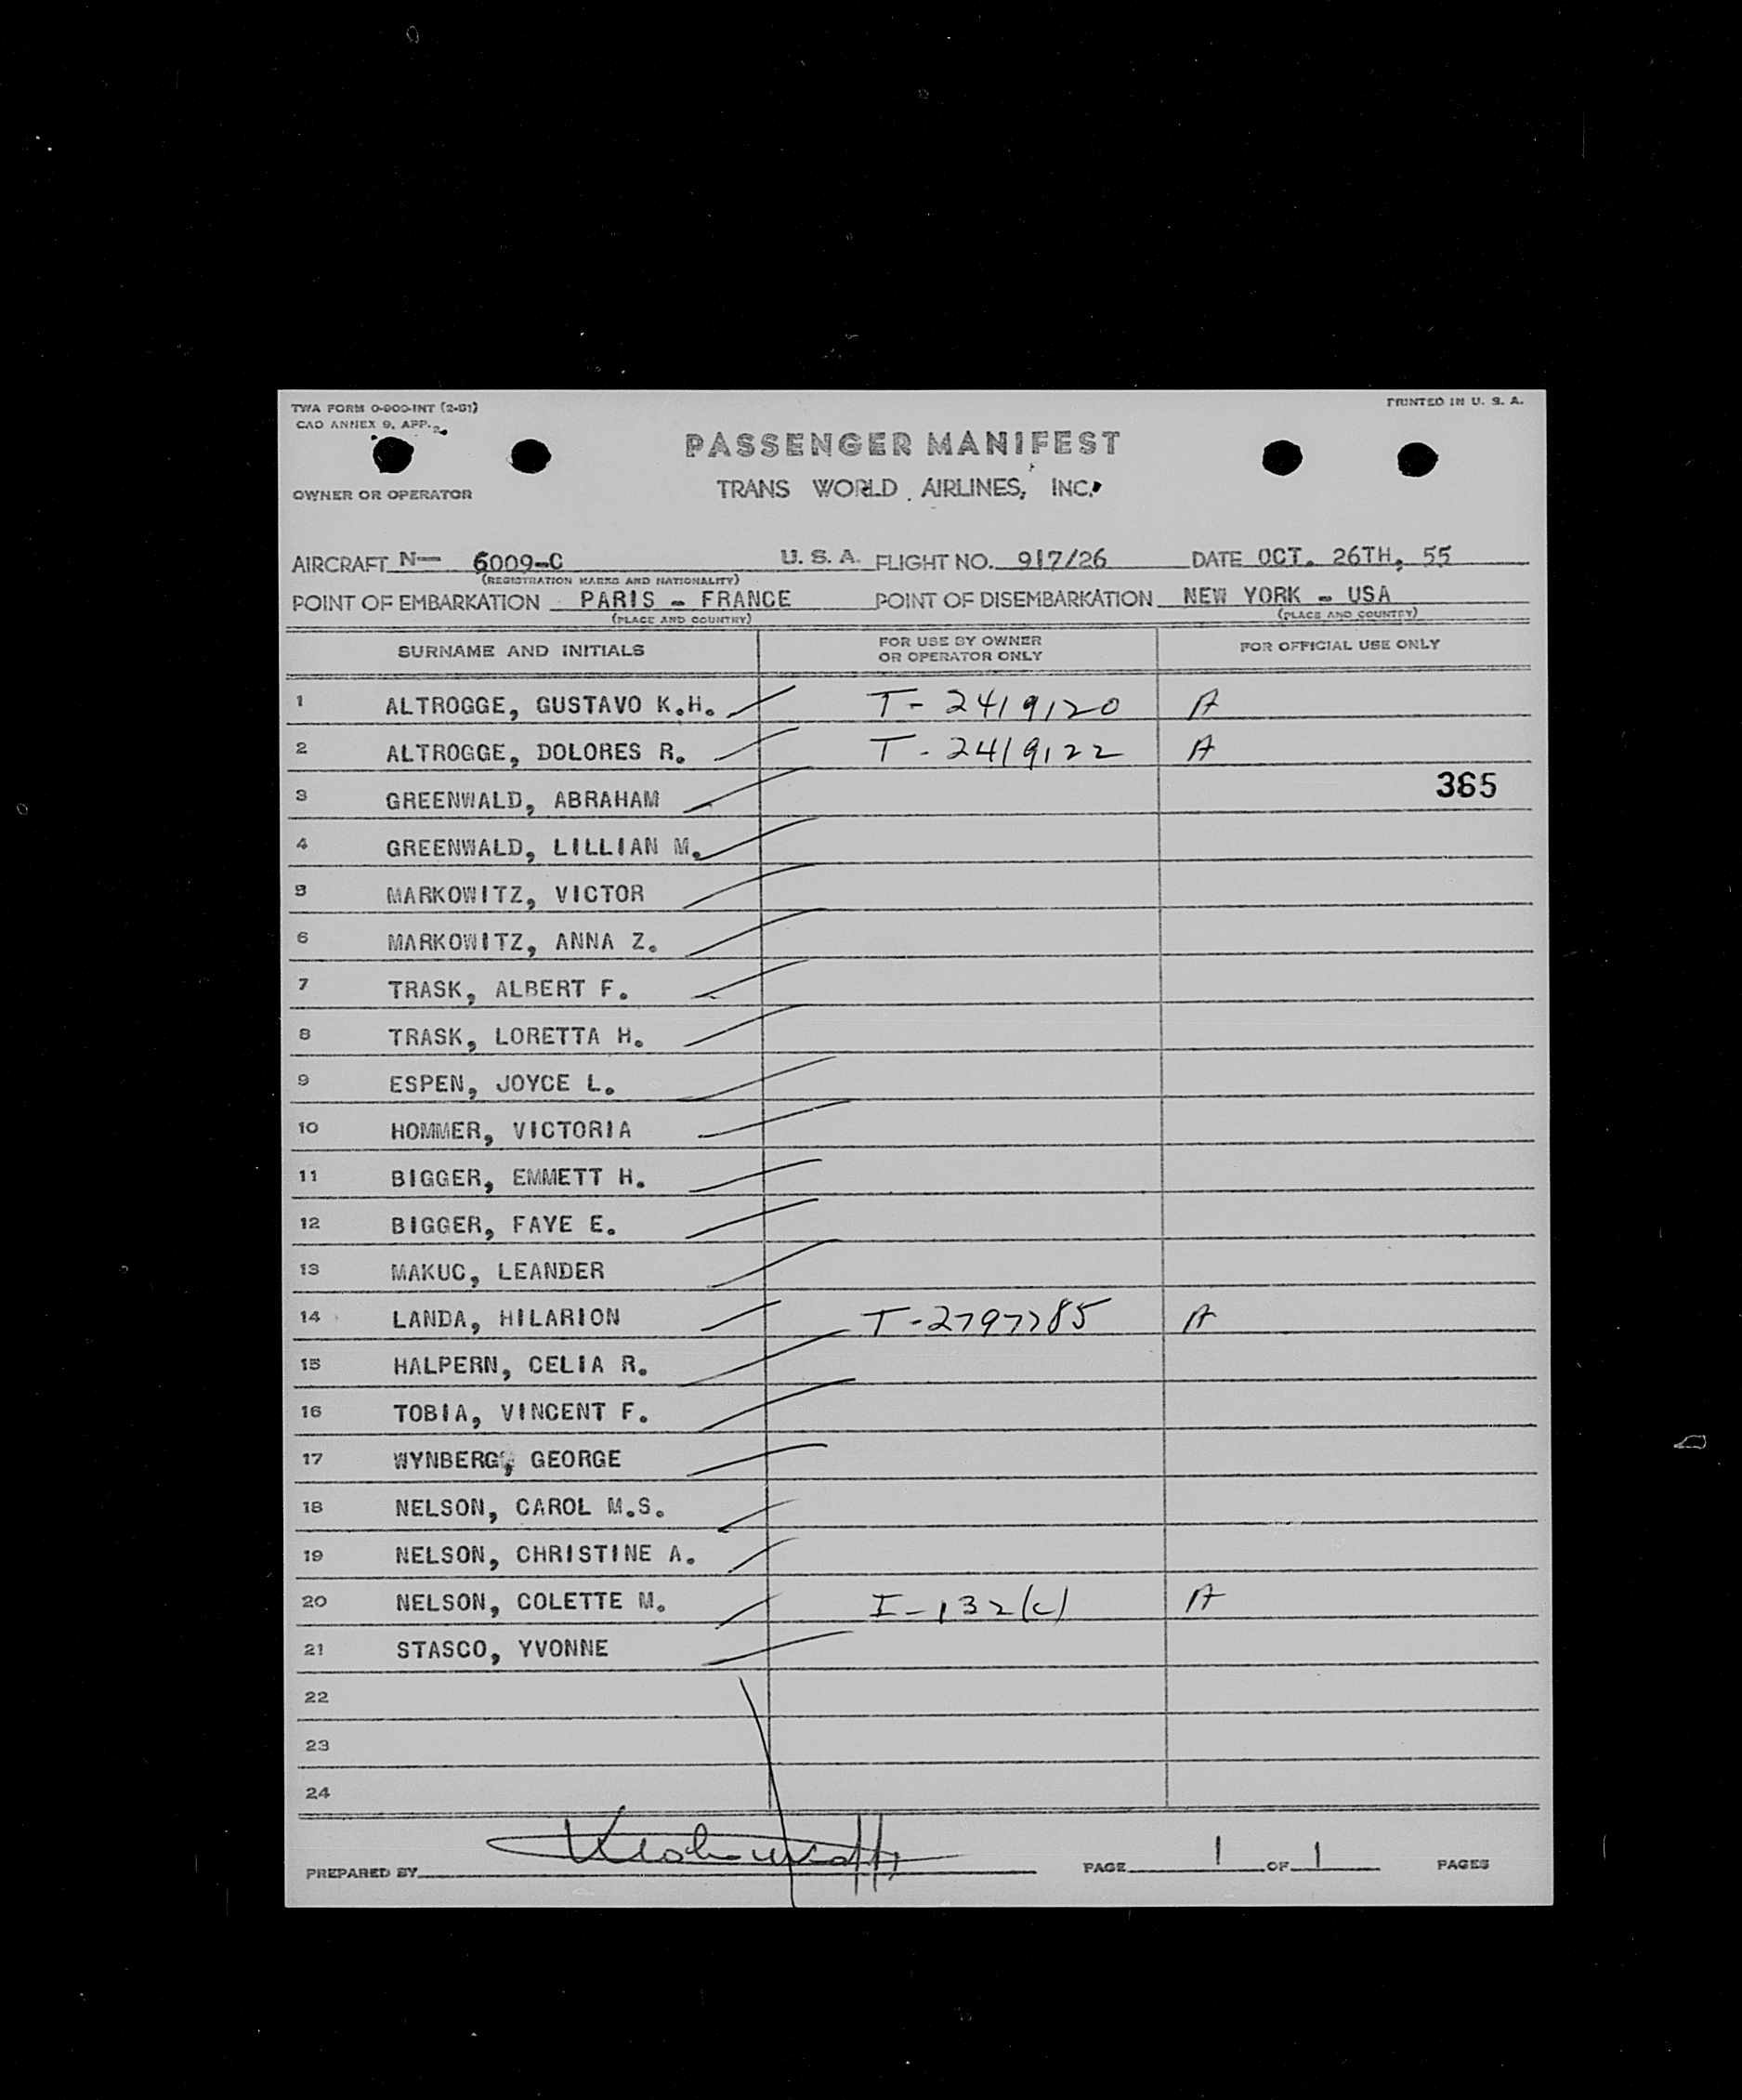 TWA FORM 0-900-INT (2-51)
PRINTED IN U. S. A.
CAO ANNEX 9, APP. 2
PASSENGER MANIFEST
OWNER OR OPERATOR
TRANS WORLD AIRLINES, INC.
AIRCRAFT N— 6009-C U. S. A. FLIGHT NO. 917/26 DATE OCT. 26TH, 55
(REGISTRATION MARKS AND NATIONALITY)
POINT OF EMBARKATION PARIS - FRANCE POINT OF DISEMBARKATION NEW YORK - USA
(PLACE AND COUNTRY) (PLACE AND COUNTRY)
SURNAME AND INITIALS FOR USE BY OWNER OR OPERATOR ONLY FOR OFFICIAL USE ONLY
1 ALTROGGE, GUSTAVO K.H. T-2419120 A
2 ALTROGGE, DOLORES R. T-2419122 A
3 GREENWALD, ABRAHAM 365
4 GREENWALD, LILLIAN M.
5 MARKOWITZ, VICTOR
6 MARKOWITZ, ANNA Z.
7 TRASK, ALBERT F.
8 TRASK, LORETTA H.
9 ESPEN, JOYCE L.
10 HOMMER, VICTORIA
11 BIGGER, EMMETT H.
12 BIGGER, FAYE E.
13 MAKUC, LEANDER
14 LANDA, HILARION T-2797785 A
15 HALPERN, CELIA R.
16 TOBIA, VINCENT F.
17 WYNBERG, GEORGE
18 NELSON, CAROL M.S.
19 NELSON, CHRISTINE A.
20 NELSON, COLETTE M. I-132(c) A
21 STASCO, YVONNE
22
23
24
PREPARED BY PAGE 1 OF 1 PAGES